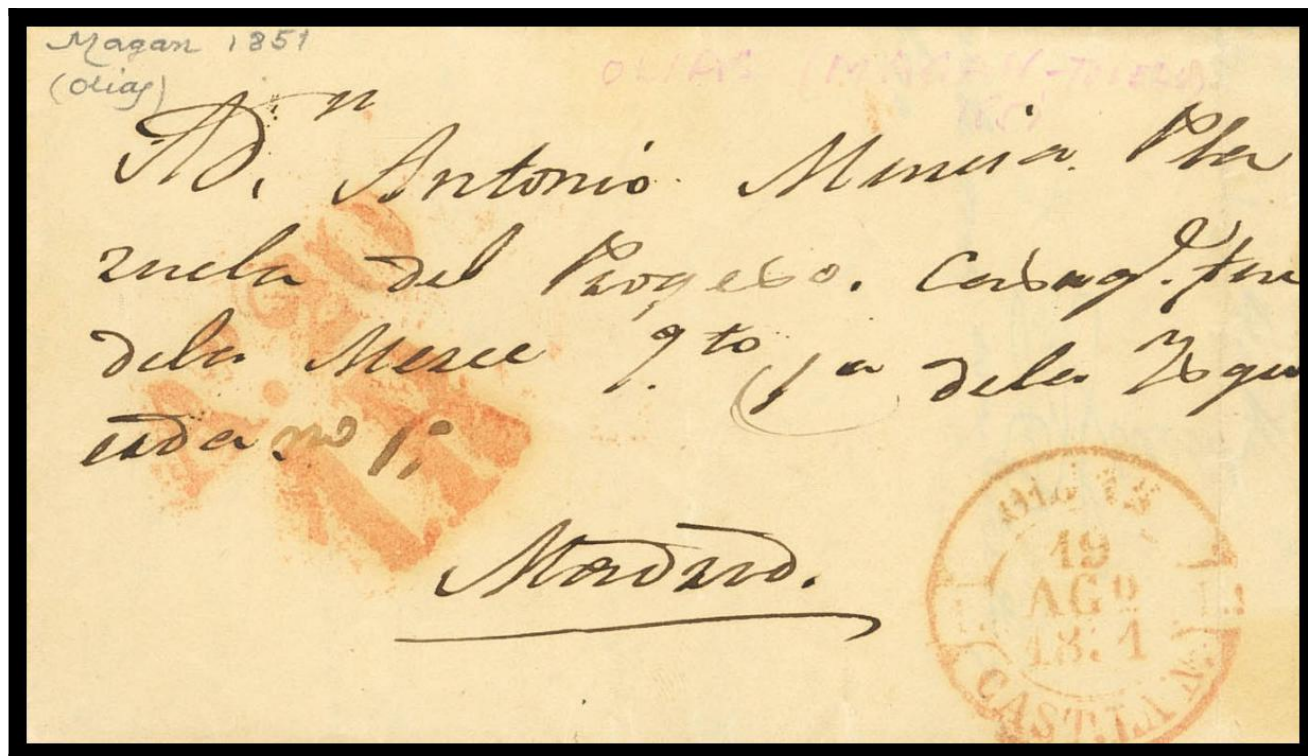 Magan 1851
(Olias)
OLIAS (MAGAN-TOLEDO)
1851
A D.n Antonio Pla
zuela del Progeso. Casa q.e fue
dela Merce q.to 1a dela Ysqu
ierda no 1o
Madrid.
OLIAS
19
AGO
1851
CASTLA N.